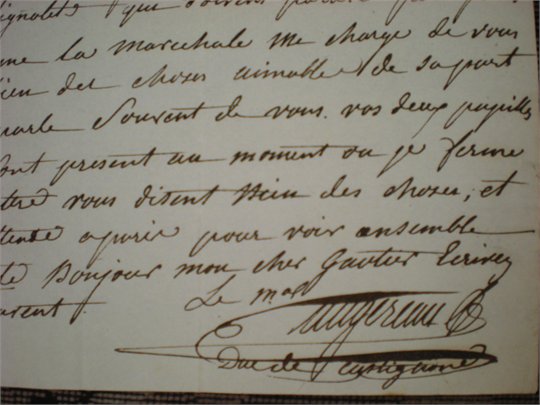 me la marechale me charge de vous
ien des choses aimable de sa part
parle Souvent de vous. vos deux pupilles
sont present au moment ou je ferme
ttre vous disent Bien des choses, et
ttende a paris pour voir ensemble
te Bonjour mon cher Gautier Ecrivez
uvent.
Le mal
augereau
Duc de Castiglione